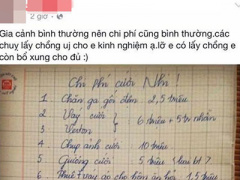 2 giờ
Gia cảnh bình thường nên chi phí cũng bình thường.các
chuỵ lấy chồng uj cho e kinh nghiệm ạ.lỡ e có lấy chồng e
còn bổ xung cho đủ :)
Chi phí cưới Nhi!
1 Chăn ga gối đệm 2,5 triệu
2 Váy cưới
6 triệu + 5tr nhẫn
3 Vecton
4 Chụp ảnh cưới 10 triệu
5 Giường cưới 5 triệu
6 Thuê